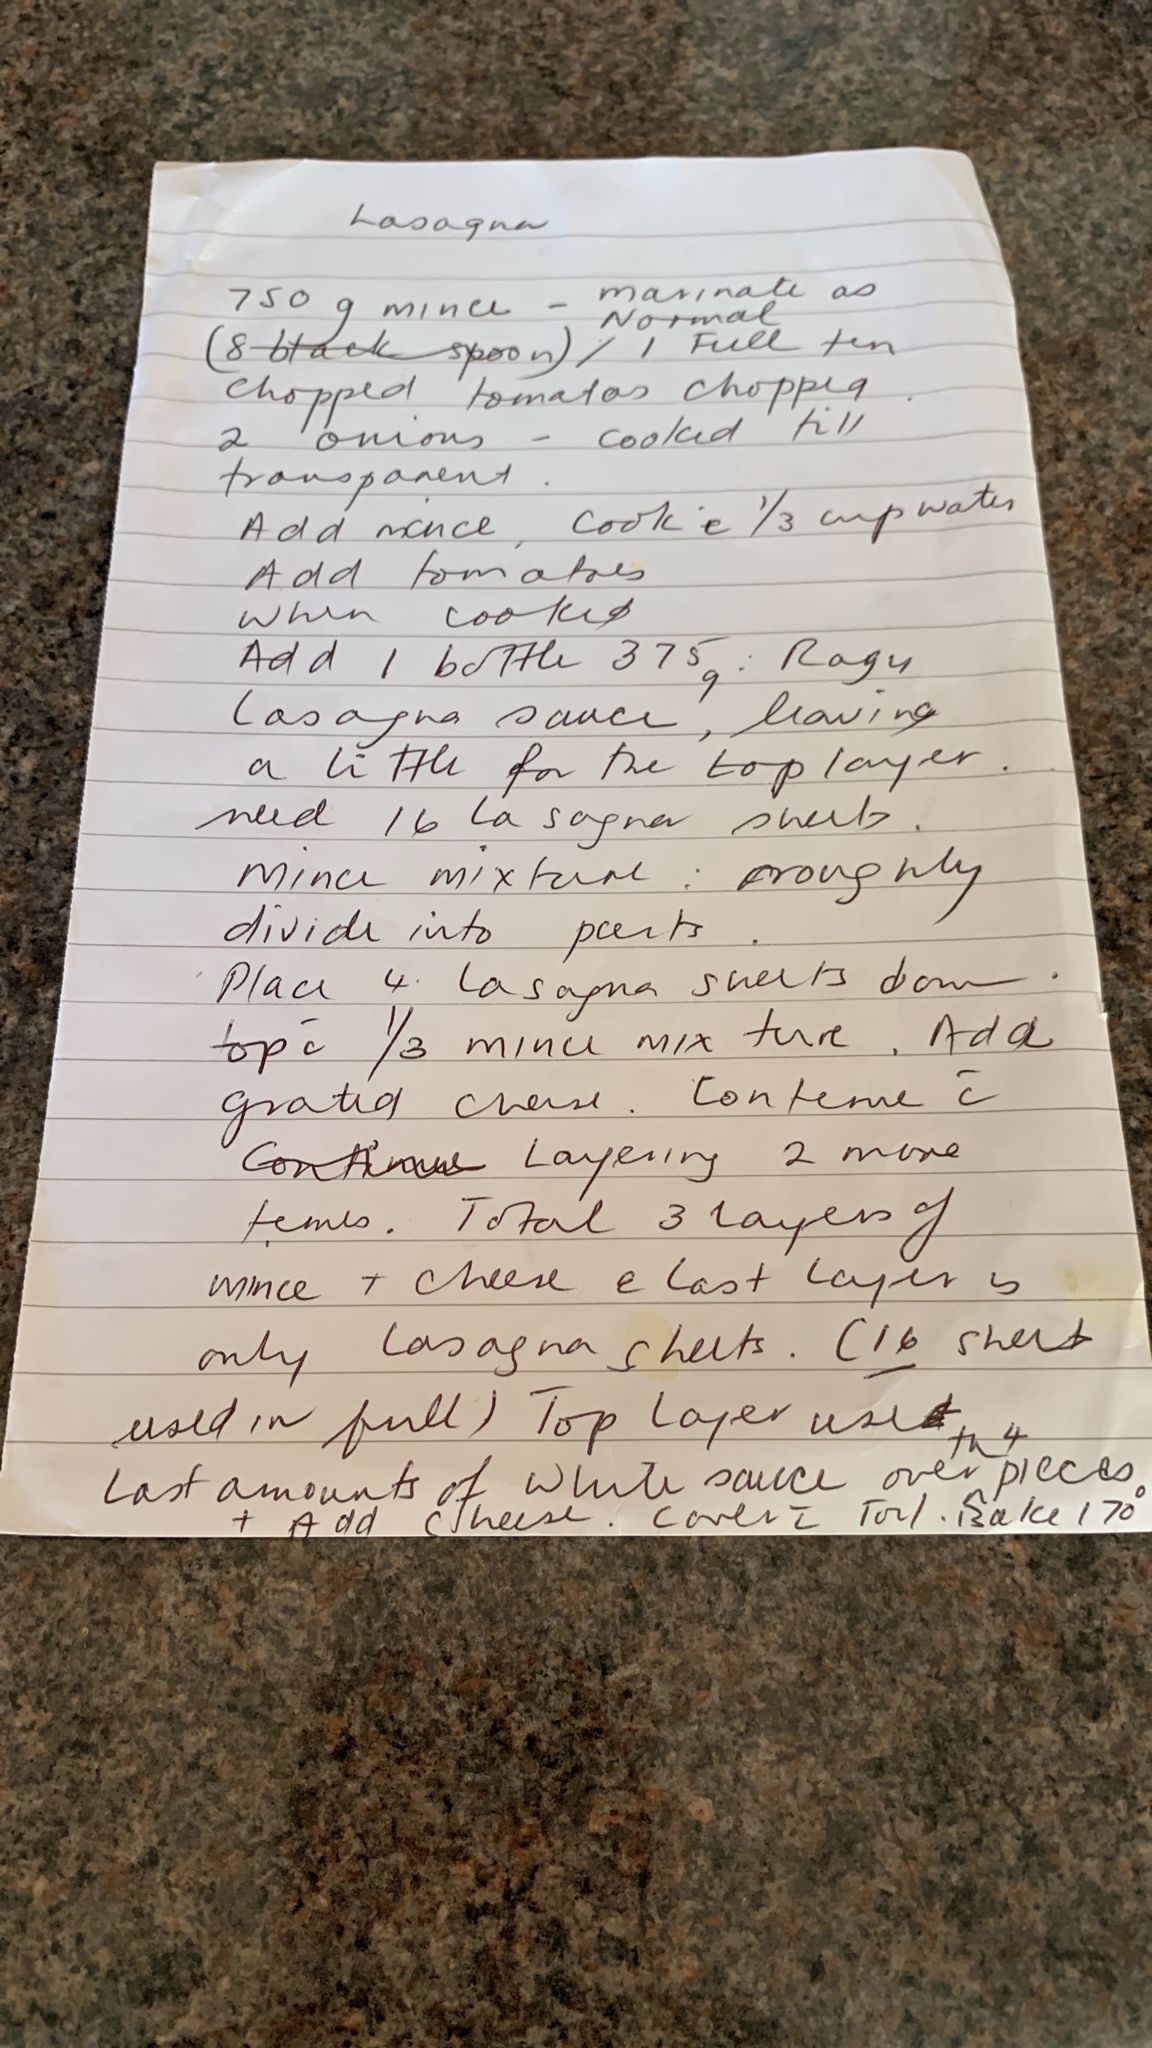 Lasagna
750 g mince - marinate as
Normal
(8 black spoon) / 1 Full ten
chopped tomatos chopped.
2 onions - cooked till
transparent.
Add mince, Cook c̄ 1/3 cup water
Add tomatoes
when cooked
Add 1 bottle 375g: Ragu
Lasagna sauce, leaving
a little for the top layer.
need 16 Lasagna sheets.
Mince mixture: roughly
divide into parts.
Place 4 Lasagna sheets down.
top c̄ 1/3 mince mixture. Add
grated cheese. Conteneue c̄
Continue Layering 2 more
temes. Total 3 layers of
mince + cheese c̄ last layer is
only Lasagna sheets. (16 sheet
used in full) Top layer use
th 4
Last amounts of white sauce over pieces.
+ Add cheese. Cover c̄ Foil. Bake 170°